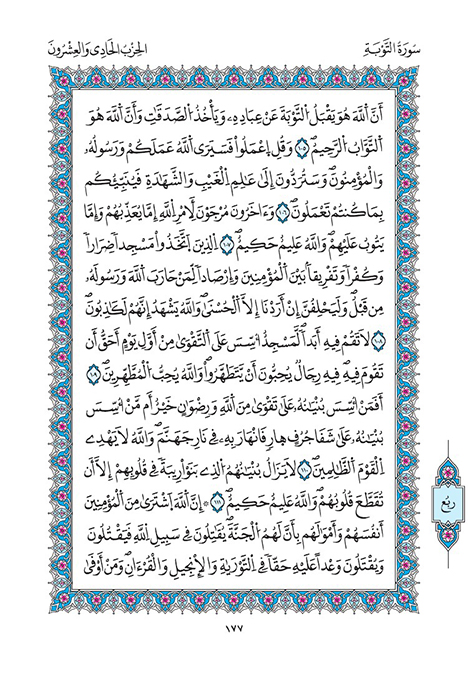 سُورَةُ التَّوْبَةِ
الحِزْبُ الحَادِي وَالعِشْرُونَ
أَنَّ اَللَّهَ هُوَ يَقْبَلُ اُلتَّوْبَةَ عَنْ عِبَادِهِۦ وَيَأْخُذُ اُلصَّدَقَٰتِ وَأَنَّ اَللَّهَ هُوَ
اَلتَّوَّابُ اُلرَّحِيمُ ١٠٥ وَقُلِ اِعْمَلُواْ فَسَيَرَى اَللَّهُ عَمَلَكُمْ وَرَسُولُهُۥ
وَالْمُؤْمِنُونَ وَسَتُرَدُّونَ إِلَىٰ عَٰلِمِ اِلْغَيْبِ وَالشَّهَٰدَةِ فَيُنَبِّئُكُم
بِمَا كُنتُمْ تَعْمَلُونَ ١٠٦ وَءَاخَرُونَ مُرْجَوْنَ لِأَمْرِ اِللَّهِ إِمَّا يُعَذِّبُهُمْ وَإِمَّا
يَتُوبُ عَلَيْهِمْ وَاللَّهُ عَلِيمٌ حَكِيمٌ ١٠٧ اِلَّذِينَ اَتَّخَذُواْ مَسْجِداً ضِرَاراً
وَكُفْراً وَتَفْرِيقاً بَيْنَ اَلْمُؤْمِنِينَ وَإِرْصَاداً لِّمَنْ حَارَبَ اَللَّهَ وَرَسُولَهُۥ
مِن قَبْلُ وَلَيَحْلِفُنَّ إِنْ أَرَدْنَا إِلَّا اَلْحُسْنَىٰ وَاللَّهُ يَشْهَدُ إِنَّهُمْ لَكَٰذِبُونَ
١٠٨ لَا تَقُمْ فِيهِ أَبَداً لَّمَسْجِدٌ أُسِّسَ عَلَى اَلتَّقْوَىٰ مِنْ أَوَّلِ يَوْمٍ أَحَقُّ أَن
تَقُومَ فِيهِ فِيهِ رِجَالٌ يُحِبُّونَ أَنْ يَتَطَهَّرُواْ وَاللَّهُ يُحِبُّ اُلْمُطَّهِّرِينَ ١٠٩
أَفَمَنْ أُسِّسَ بُنْيَٰنُهُۥ عَلَىٰ تَقْوَىٰ مِنَ اَللَّهِ وَرِضْوَٰنٍ خَيْرٌ أَم مَّنْ أُسِّسَ
بُنْيَٰنُهُۥ عَلَىٰ شَفَا جُرُفٍ هِارٍ فَانْهَارَ بِهِۦ فِي نَارِ جَهَنَّمَ وَاللَّهُ لَا يَهْدِي
اِلْقَوْمَ اَلظَّٰلِمِينَ ١١٠ لَا يَزَالُ بُنْيَٰنُهُمُ اُلَّذِي بَنَوْاْ رِيبَةً فِي قُلُوبِهِمْ إِلَّا أَن
تُقَطَّعَ قُلُوبُهُمْ وَاللَّهُ عَلِيمٌ حَكِيمٌ ١١١ ۞ إِنَّ اَللَّهَ اَشْتَرَىٰ مِنَ اَلْمُؤْمِنِينَ
أَنفُسَهُمْ وَأَمْوَٰلَهُم بِأَنَّ لَهُمُ اُلْجَنَّةَ يُقَٰتِلُونَ فِي سَبِيلِ اِللَّهِ فَيَقْتُلُونَ
وَيُقْتَلُونَ وَعْداً عَلَيْهِ حَقّاً فِي اِلتَّوْرَىٰةِ وَالْإِنجِيلِ وَالْقُرْءَانِ وَمَنْ أَوْفَىٰ
ربع
١٧٧